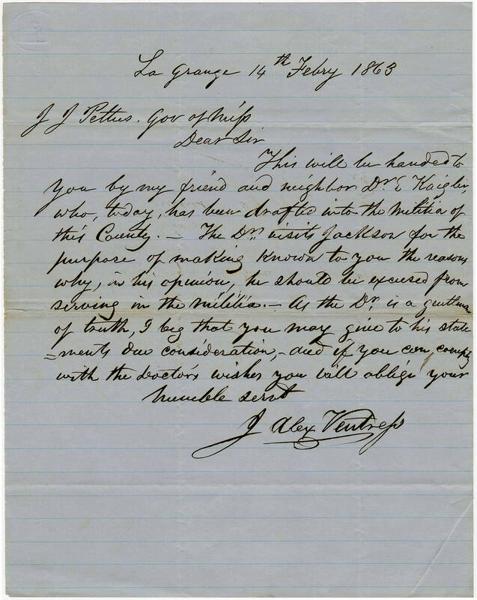 La Grange 14th Febry 1863
J J Pettus. Gov of Miss
Dear Sir
This will be handed to
you by my friend and neighbor Dr E Kaigler
who, today, has been drafted into the Militia of
this County. — The Dr. visits Jackson for the
purpose of making known to you the reasons
why, in his opinion, he should be excused from
serving in the militia. — As the Dr. is a gentleman
of truth, I beg that you may give to his state
=ments due consideration, — and if you can comply
with the doctor's wishes you will oblige your
humble servt
J Alex Ventress